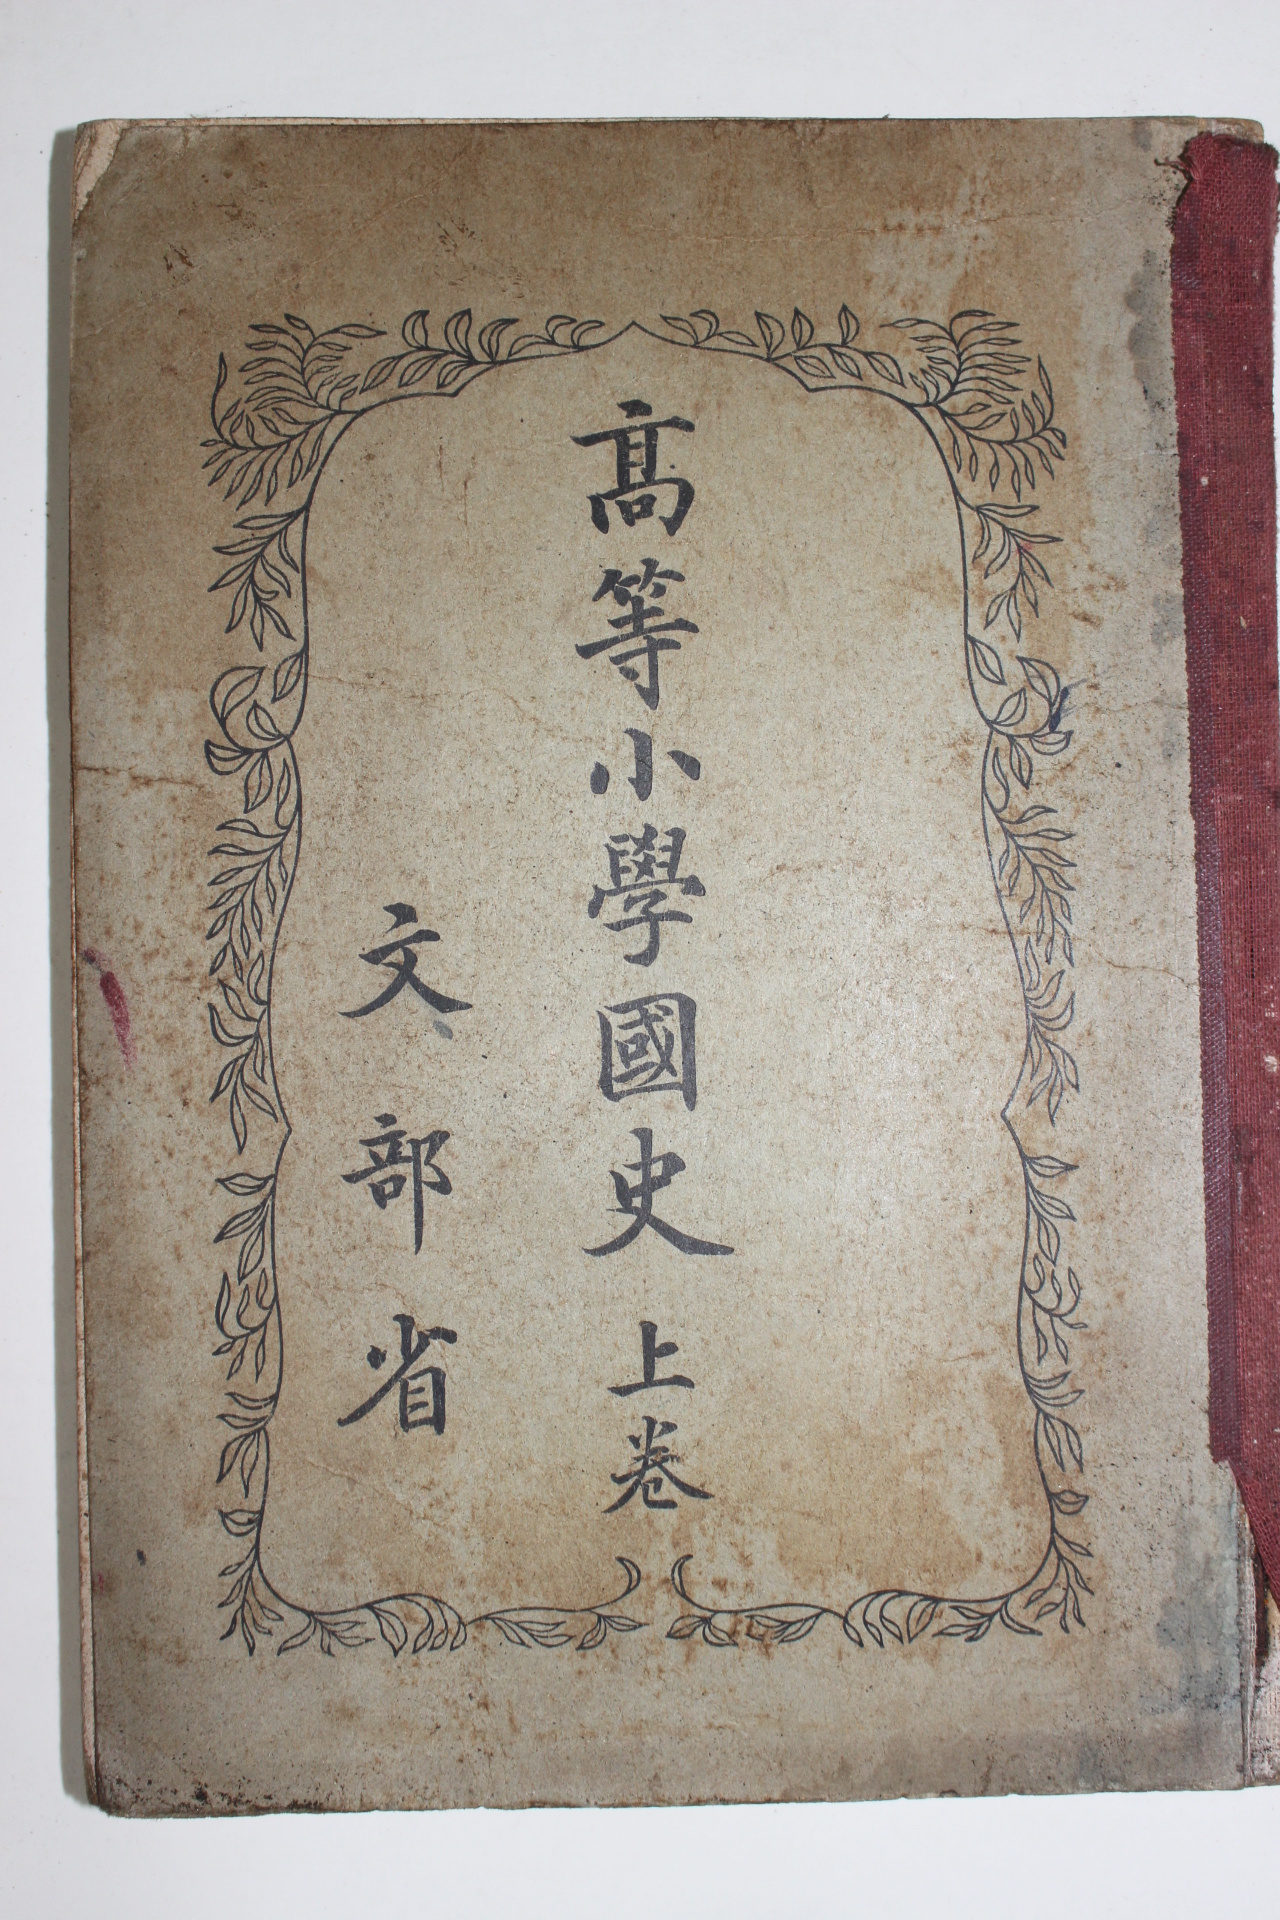 髙等小學國史 上卷
文部省